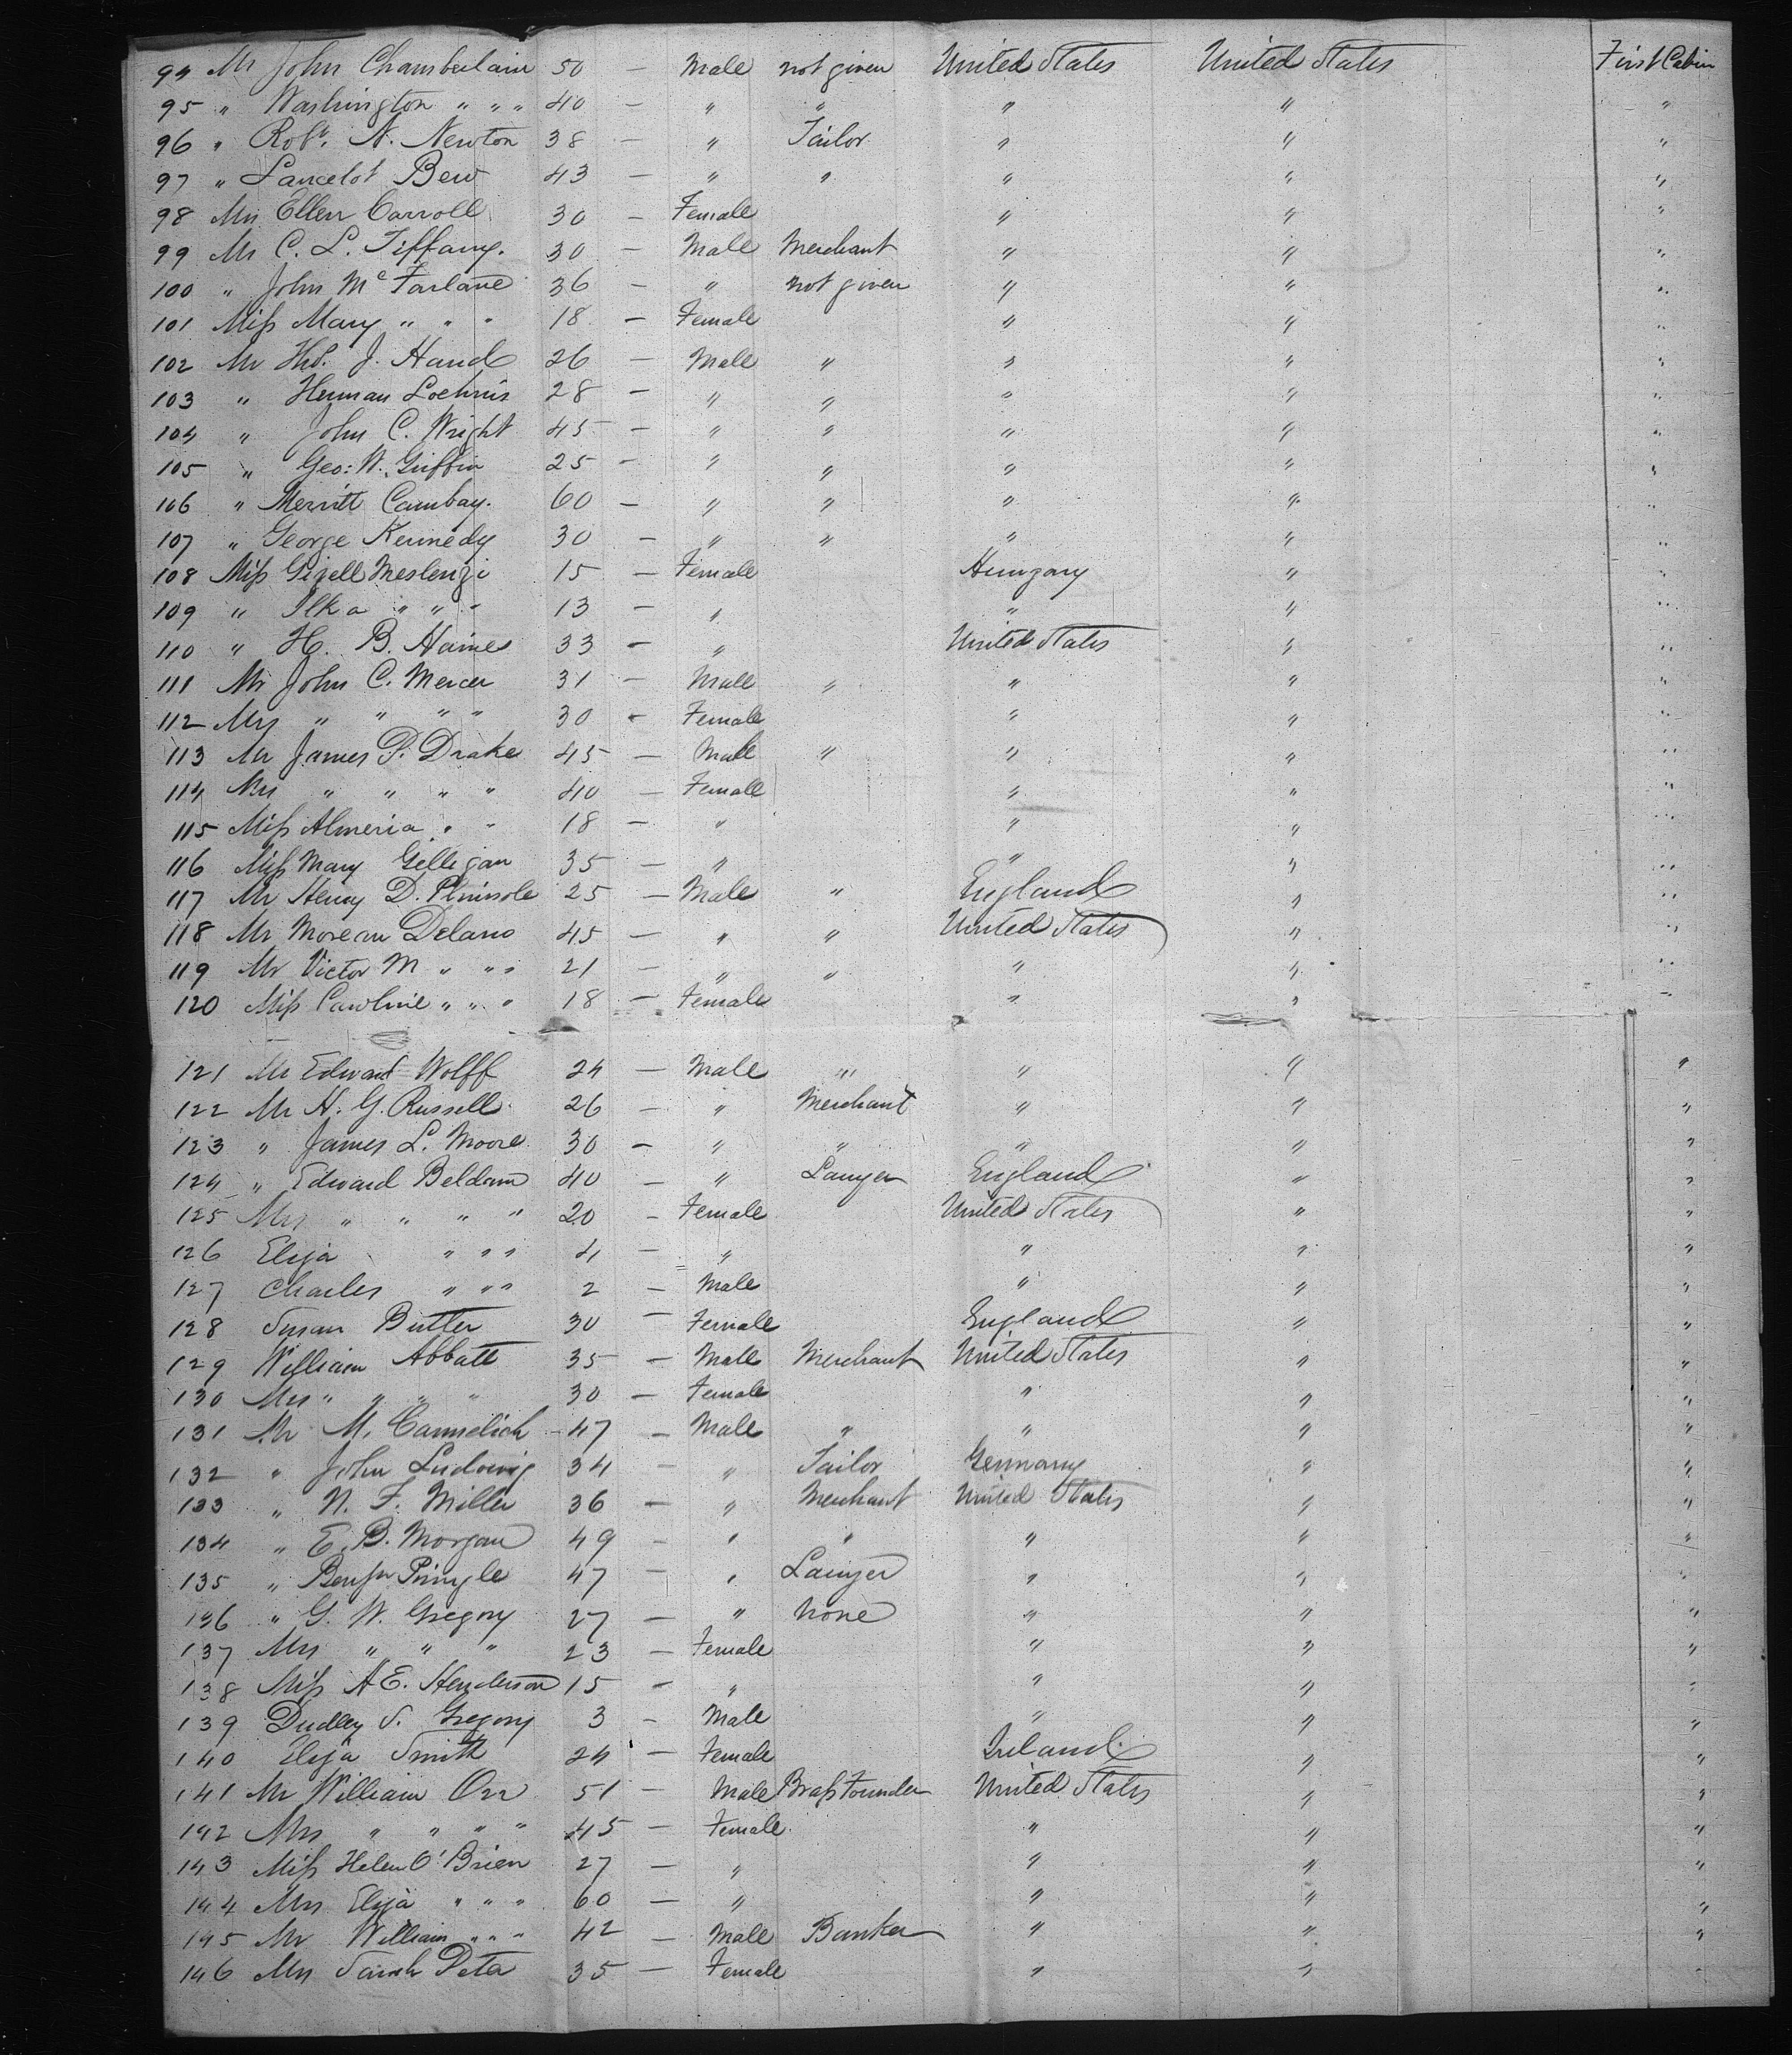 94 Mr John Chamberlain 50 — Male not given United States United States First Cabin
95 " Washington " " " 40 — " " " " "
96 " Robt. N. Newton 38 — " Tailor " " "
97 " Lancelot Bew 43 — " " " " "
98 Mrs Ellen Carroll 30 — Female " " "
99 Mr C. L. Tiffany. 30 — Male Merchant " " "
100 " John McFarlane 36 — " not given " " "
101 Miss Mary " " " 18 — Female " " "
102 Mr Thos. J. Hand 26 — Male " " " "
103 " Herman 28 — " " " " "
104 " John C. Wright 45 — " " " " "
105 " Geo: W. Griffin 25 — " " " " "
106 " Merritt Cambay. 60 — " " " " "
107 " George Kennedy 30 — " " " " "
108 Miss Gizell Meslenzi 15 — Female Hungary " "
109 " Ilka " " " 13 — " " " "
110 " H. B. Haines 33 — " United States " "
111 Mr John C. Mercer 31 — Male " " " "
112 Mrs " " " " 30 — Female " " "
113 Mr James P. Drake 45 — Male " " " "
114 Mrs " " " " 40 — Female " " "
115 Miss Almeria " " 18 — " " " "
116 Miss Mary Gilligan 35 — " " " "
117 Mr Henry D. Plimsole 25 — Male " England " "
118 Mr Moreau Delano 45 — " " United States " "
119 Mr Victor M " " " 21 — " " " " "
120 Miss Caroline " " " 18 — Female " " "
121 Mr Edward Wolff 24 — Male " " " "
122 Mr H. G. Russell 26 — " Merchant " " "
123 " James L. Moore 30 — " " " " "
124 " Edward Beldam 40 — " Lawyer England " "
125 Mrs " " " " 20 — Female United States " "
126 Eliza " " " 4 — " " " "
127 Charles " " " 2 — Male " " "
128 Susan Butler 30 — Female England " "
129 William Abbatt 35 — Male Merchant United States " "
130 Mrs " " " " 30 — Female " " "
131 Mr M. Cannelich 47 — Male " " " "
132 " John Ludowig 34 — " Tailor Germany " "
133 " N. F. Miller 36 — " Merchant United States " "
134 " E. B. Morgan 49 — " " " " "
135 " Benjn Pringle 47 — " Lawyer " " "
136 " G. W. Gregory 27 — " None " " "
137 Mrs " " " 23 — Female " " "
138 Miss A E. Henderson 15 — " " " "
139 Dudley S. Gregory 3 — Male " " "
140 Eliza Smith 24 — Female Ireland " "
141 Mr William Orr 51 — Male Brass Founder United States " "
142 Mrs " " " " 45 — Female " " "
143 Miss Helen O'Brien 27 — " " " "
144 Mrs Eliza " " " 60 — " " " "
145 Mr William " " " 42 — Male Banker " " "
146 Mrs Sarah Peta 35 — Female " " "